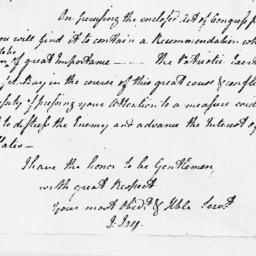 On perusing the enclosed Act of Congress
you will find it to contain a Recommendation
take
of great Importance — — the Patriotic
Bay in the course of this great cause &
of pressing your Attention to a measure
to distress the Enemy and advance the Interest of
States —
I have the honor to be Gentlemen
with great Respect
Your most Obedt. & Hble Servt.
J. Jay.